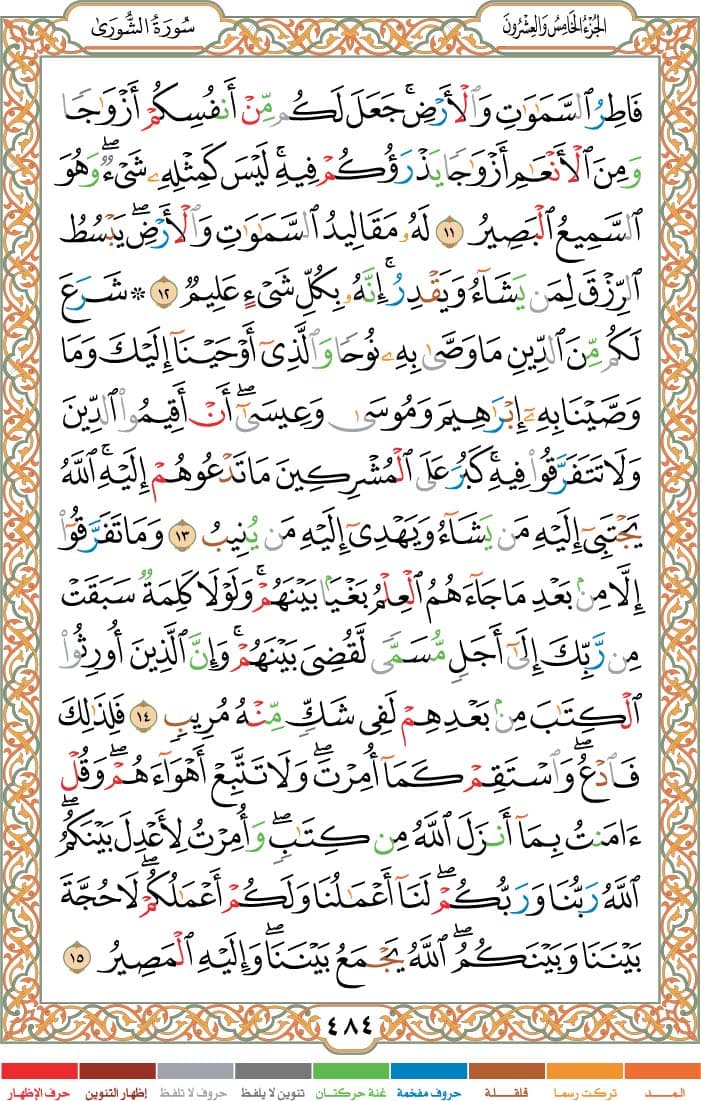 سُورَةُ الشُّورَىٰ
الجُزْءُ الخَامِسُ وَالعِشْرُونَ
فَاطِرُ ٱلسَّمَٰوَٰتِ وَٱلْأَرْضِ ۚ جَعَلَ لَكُم مِّنْ أَنفُسِكُمْ أَزْوَٰجًا
وَمِنَ ٱلْأَنْعَٰمِ أَزْوَٰجًا يَذْرَؤُكُمْ فِيهِ ۚ لَيْسَ كَمِثْلِهِۦ شَىْءٌ ۖ وَهُوَ
ٱلسَّمِيعُ ٱلْبَصِيرُ ١١ لَهُۥ مَقَالِيدُ ٱلسَّمَٰوَٰتِ وَٱلْأَرْضِ ۖ يَبْسُطُ
ٱلرِّزْقَ لِمَن يَشَآءُ وَيَقْدِرُ ۚ إِنَّهُۥ بِكُلِّ شَىْءٍ عَلِيمٌ ١٢ ۞ شَرَعَ
لَكُم مِّنَ ٱلدِّينِ مَا وَصَّىٰ بِهِۦ نُوحًا وَٱلَّذِىٓ أَوْحَيْنَآ إِلَيْكَ وَمَا
وَصَّيْنَا بِهِۦٓ إِبْرَٰهِيمَ وَمُوسَىٰ وَعِيسَىٰٓ ۖ أَنْ أَقِيمُوا۟ ٱلدِّينَ
وَلَا تَتَفَرَّقُوا۟ فِيهِ ۚ كَبُرَ عَلَى ٱلْمُشْرِكِينَ مَا تَدْعُوهُمْ إِلَيْهِ ۚ ٱللَّهُ
يَجْتَبِىٓ إِلَيْهِ مَن يَشَآءُ وَيَهْدِىٓ إِلَيْهِ مَن يُنِيبُ ١٣ وَمَا تَفَرَّقُوٓا۟
إِلَّا مِنۢ بَعْدِ مَا جَآءَهُمُ ٱلْعِلْمُ بَغْيًۢا بَيْنَهُمْ ۚ وَلَوْلَا كَلِمَةٌ سَبَقَتْ
مِن رَّبِّكَ إِلَىٰٓ أَجَلٍ مُّسَمًّى لَّقُضِىَ بَيْنَهُمْ ۚ وَإِنَّ ٱلَّذِينَ أُورِثُوا۟
ٱلْكِتَٰبَ مِنۢ بَعْدِهِمْ لَفِى شَكٍّ مِّنْهُ مُرِيبٍ ١٤ فَلِذَٰلِكَ
فَٱدْعُ ۖ وَٱسْتَقِمْ كَمَآ أُمِرْتَ ۖ وَلَا تَتَّبِعْ أَهْوَآءَهُمْ ۖ وَقُلْ
ءَامَنتُ بِمَآ أَنزَلَ ٱللَّهُ مِن كِتَٰبٍ ۖ وَأُمِرْتُ لِأَعْدِلَ بَيْنَكُمُ ۖ
ٱللَّهُ رَبُّنَا وَرَبُّكُمْ ۖ لَنَآ أَعْمَٰلُنَا وَلَكُمْ أَعْمَٰلُكُمْ ۖ لَا حُجَّةَ
بَيْنَنَا وَبَيْنَكُمُ ۖ ٱللَّهُ يَجْمَعُ بَيْنَنَا ۖ وَإِلَيْهِ ٱلْمَصِيرُ ١٥
٤٨٤
المــد
تركت رسما
قلقلة
حروف مفخمة
غنة حركتان
تنوين لا يلفظ
حروف لا تلفظ
إظهار التنوين
حرف الإظهار